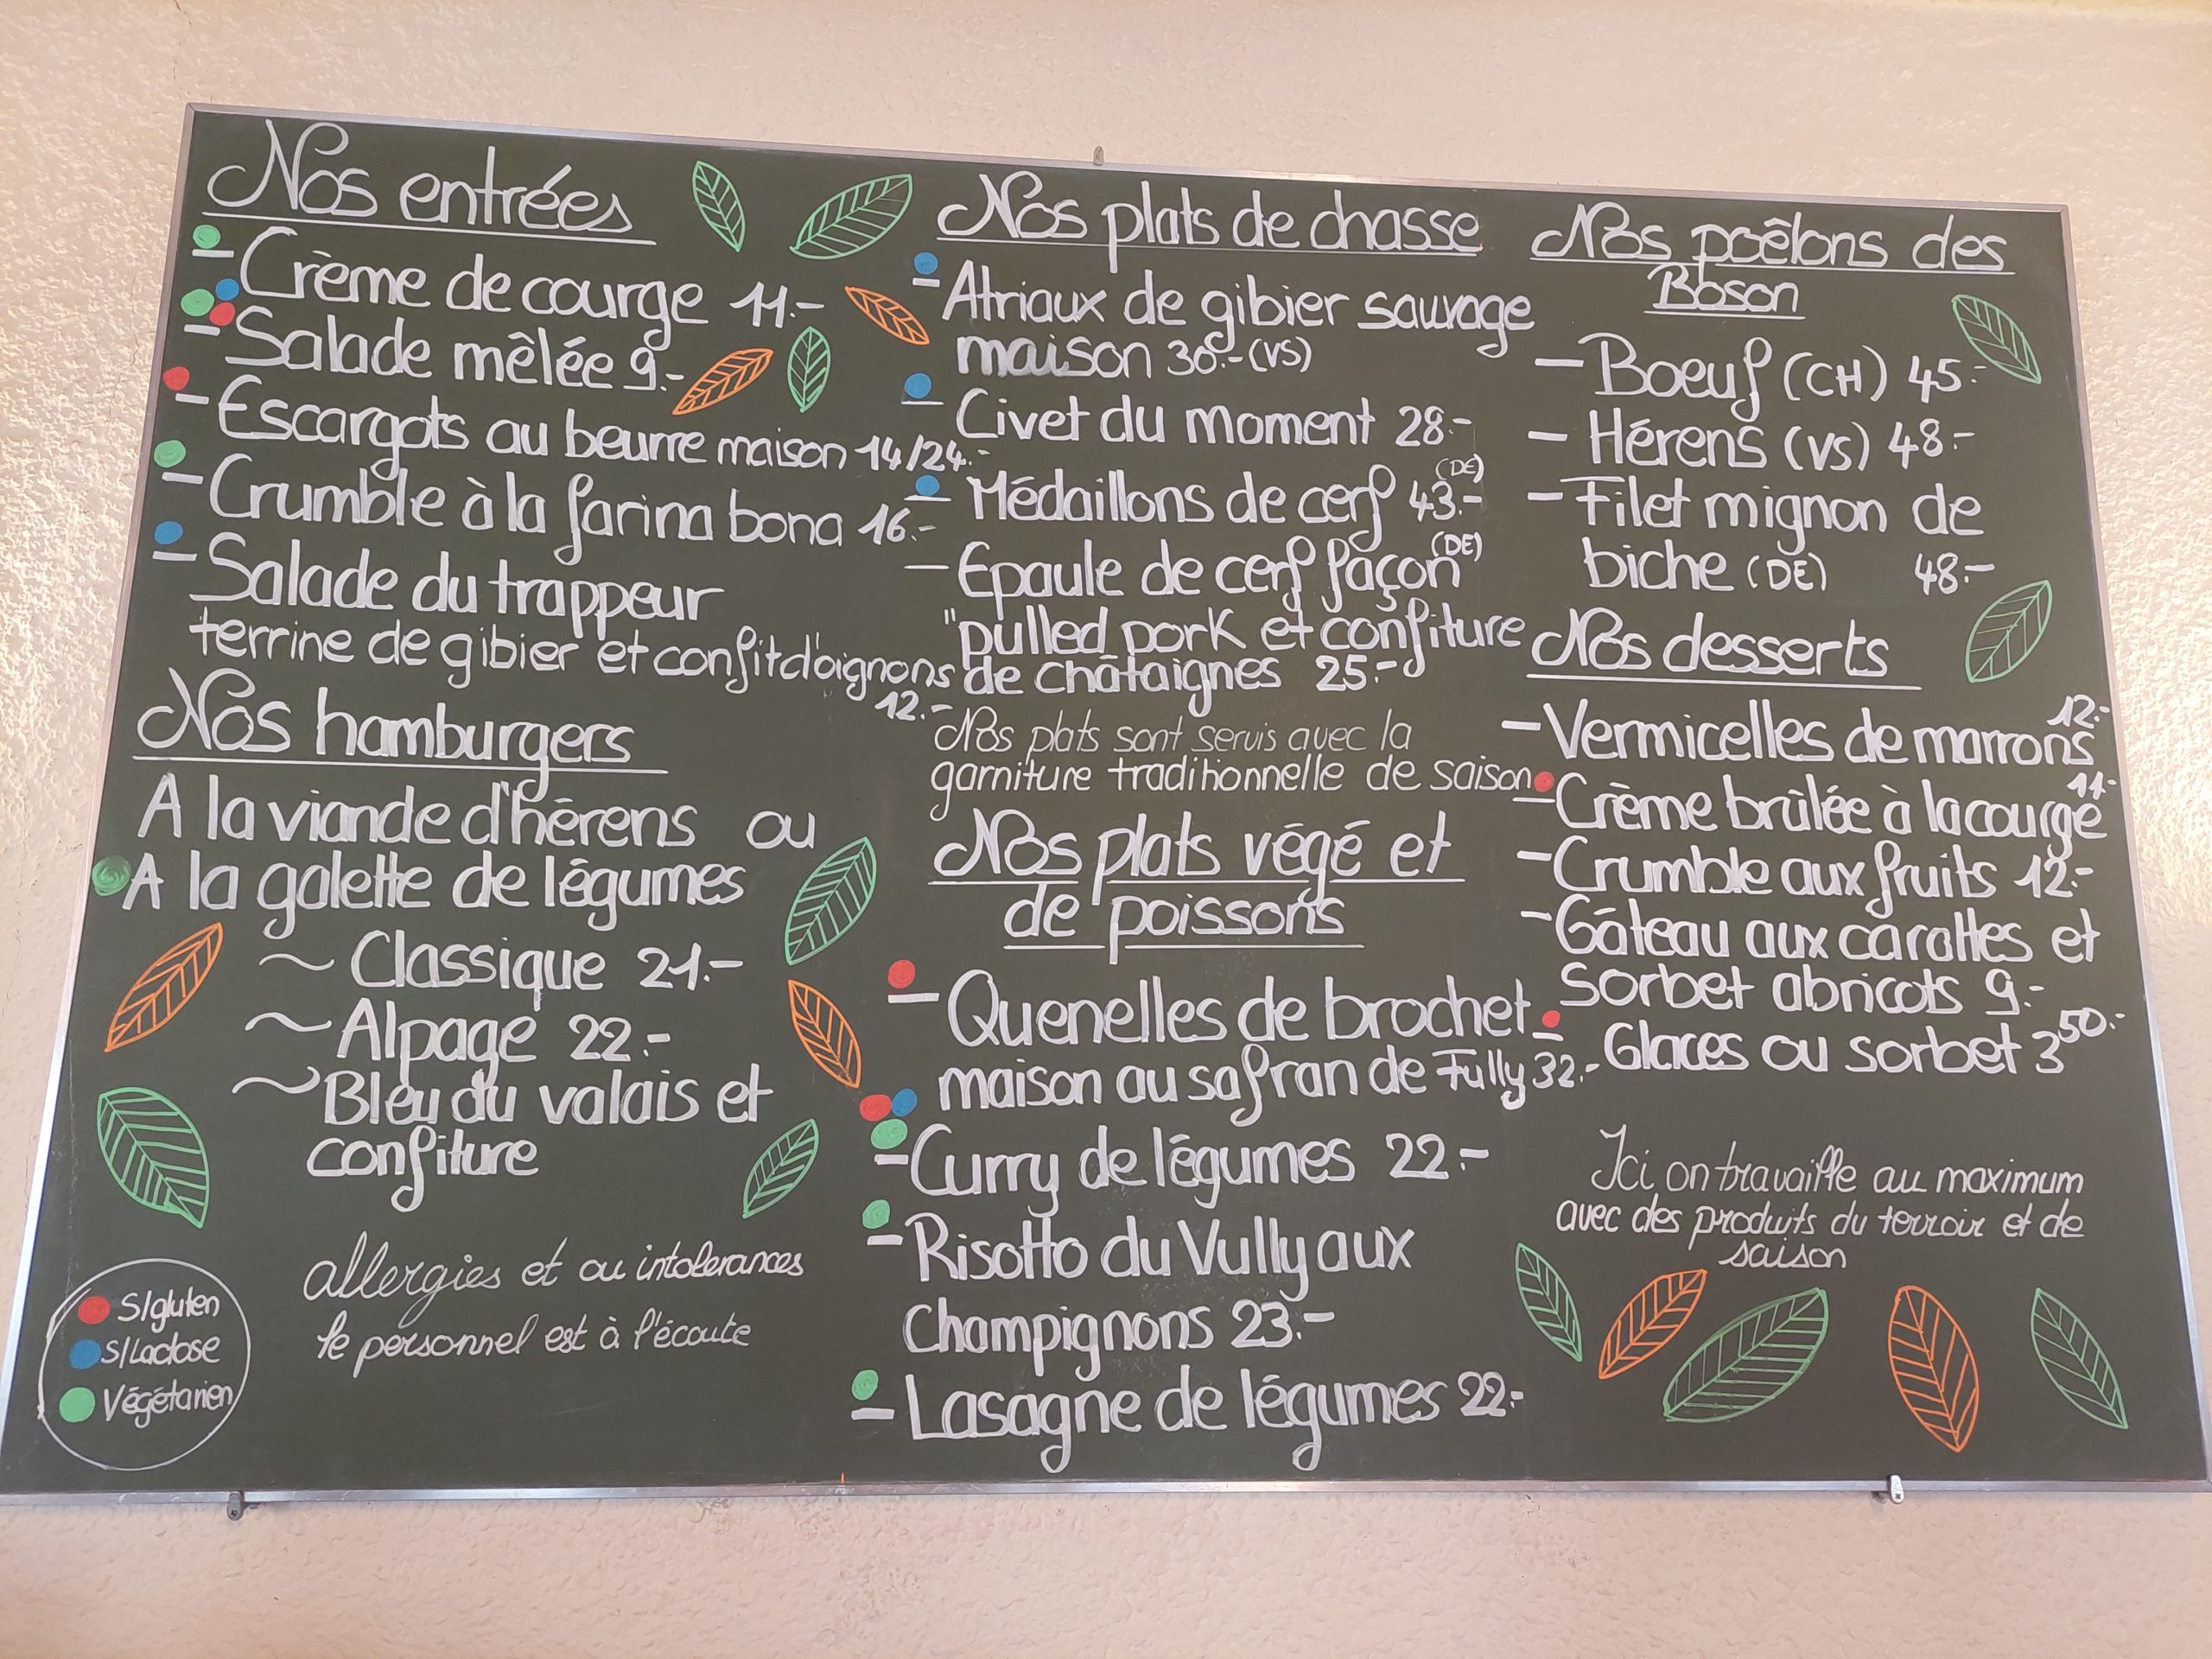 Nos entrées
- Crème de courge 11.-
- Salade mêlée 9.-
- Escargots au beurre maison 14/24.-
- Crumble à la farina bona 16.-
- Salade du trappeur
terrine de gibier et confit d'oignons
12.-
Nos hamburgers
A la viande d'hérens ou
A la galette de légumes
~ Classique 21.-
~ Alpage 22.-
~ Bleu du valais et
confiture
allergies et ou intolerances
le personnel est à l'écoute
S/gluten
S/Lactose
Végétarien
Nos plats de chasse
- Atriaux de gibier sauvage
maison 30.- (VS)
- Civet du moment 28.-
- Médaillons de cerf (DE) 43.-
- Epaule de cerf façon (DE)
"pulled pork" et confiture
de châtaignes 25.-
Nos plats sont servis avec la
garniture traditionnelle de saison
Nos plats végé et
de poissons
- Quenelles de brochet
maison au safran de Fully 32.-
- Curry de légumes 22.-
- Risotto du Vully aux
Champignons 23.-
- Lasagne de légumes 22.-
Nos poêlons des
Boson
- Boeuf (CH) 45.-
- Hérens (VS) 48.-
- Filet mignon de
biche (DE) 48.-
Nos desserts
- Vermicelles de marrons 12.-
- Crème brûlée à la courge 11.-
- Crumble aux fruits 12.-
- Gâteau aux carottes et
sorbet abricots 9.-
- Glaces ou sorbet 3 50.-
Ici on travaille au maximum
avec des produits du terroir et de
saison